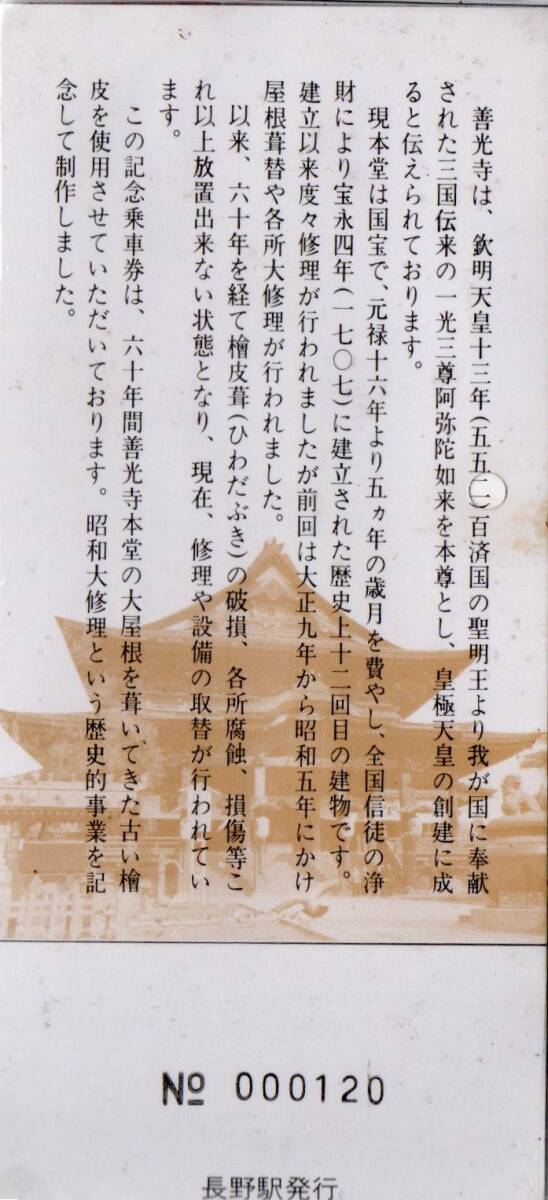 善光寺は、欽明天皇十三年(五五二)百済国の聖明王より我が国に奉献
された三国伝来の一光三尊阿弥陀如来を本尊とし、皇極天皇の創建に成
ると伝えられております。
現本堂は国宝で、元禄十六年より五ヵ年の歳月を費やし、全国信徒の浄
財により宝永四年(一七〇七)に建立された歴史上十二回目の建物です。
建立以来度々修理が行われましたが前回は大正九年から昭和五年にかけ
屋根葺替や各所大修理が行われました。
以来、六十年を経て檜皮葺(ひわだぶき)の破損、各所腐蝕、損傷等こ
れ以上放置出来ない状態となり、現在、修理や設備の取替が行われてい
ます。
この記念乗車券は、六十年間善光寺本堂の大屋根を葺いてきた古い檜
皮を使用させていただいております。昭和大修理という歴史的事業を記
念して制作しました。
№ 000120
長野駅発行